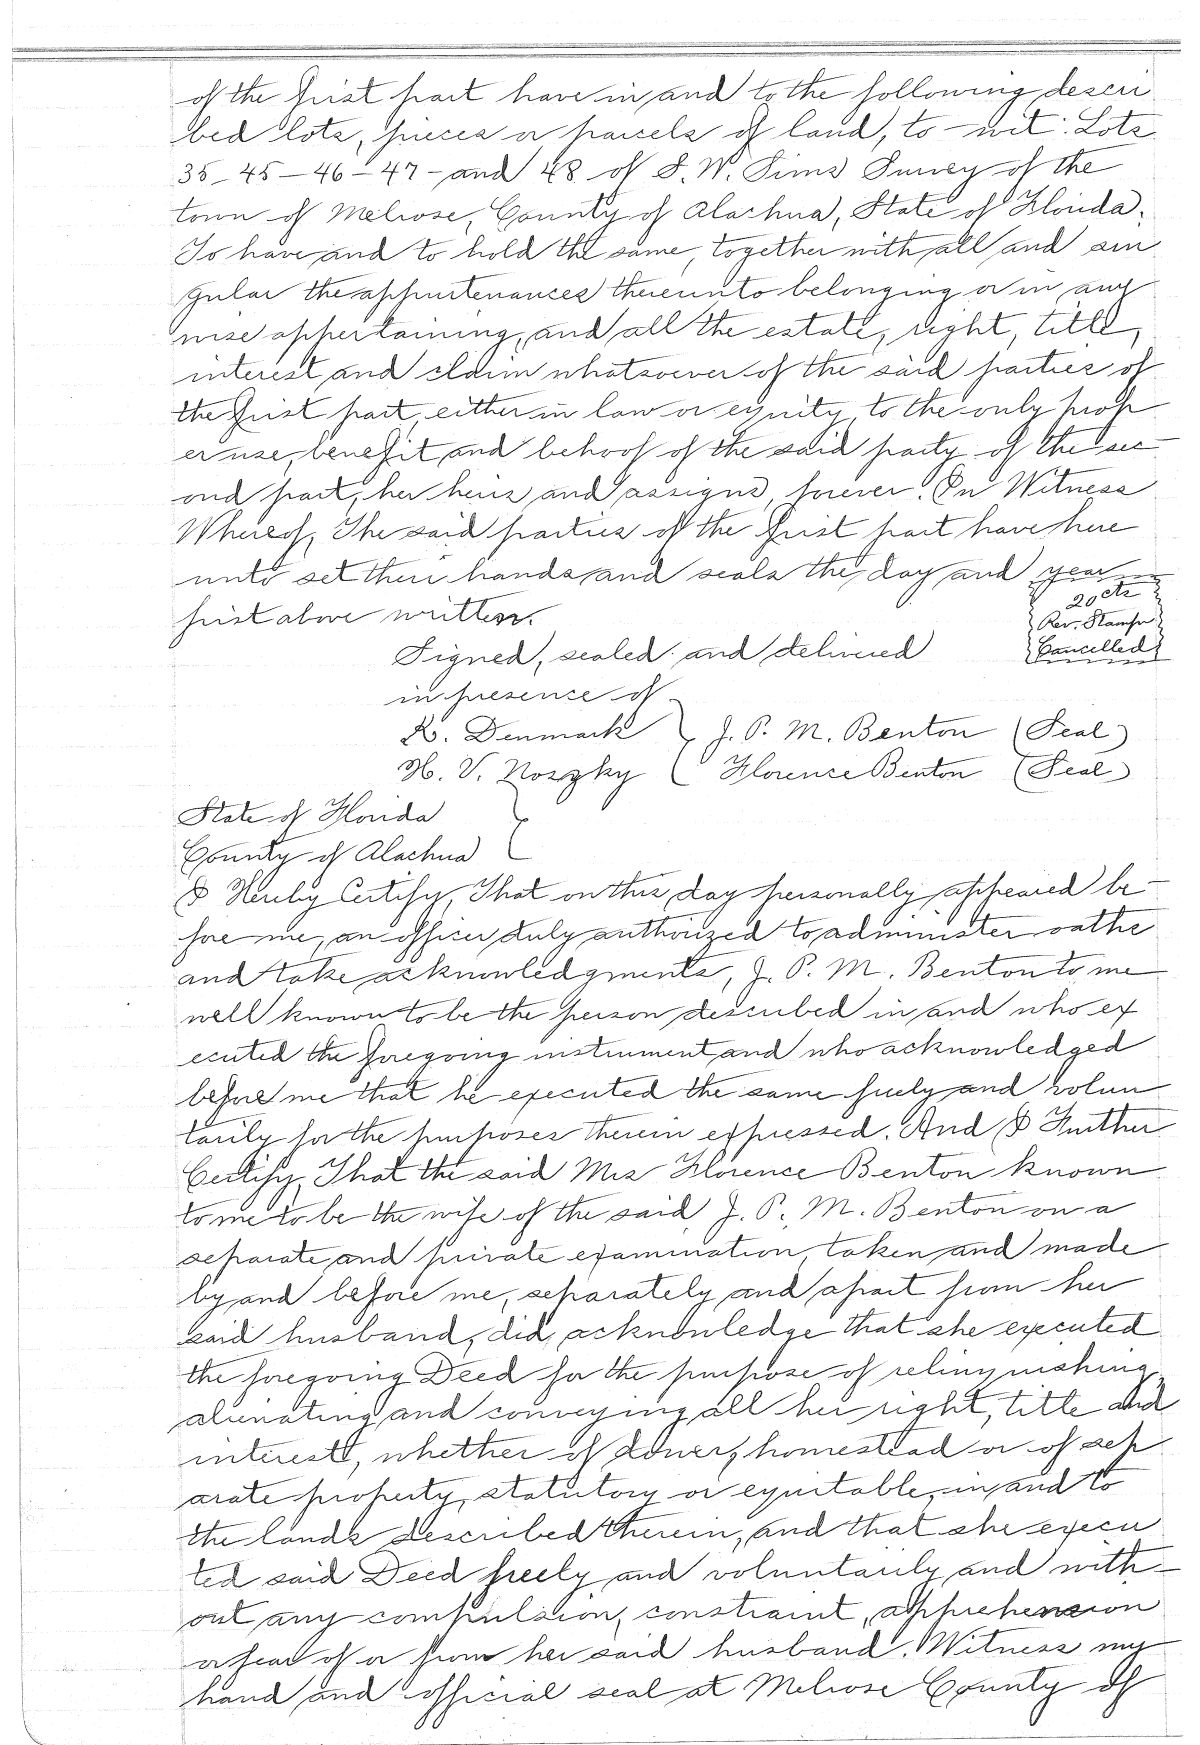 of the first part have in and to the following descri
bed lots, pieces or parcels of land, to-wit: Lots
35-45-46-47-and 48 of S. W. Sims Survey of the
town of Melrose, County of Alachua, State of Florida.
To have and to hold the same, together with all and sin
gular the appurtenances thereunto belonging or in any
wise appertaining, and all the estate, right, title,
interest and claim whatsoever of the said parties of
the first part, either in law or equity to the only prop
er use, benefit and behoof of the said party of the sec-
ond part, her heirs and assigns, forever. In Witness
Whereof, The said parties of the first part have here
unto set their hands and seals the day and year
first above written.
20 cts
Rev. Stamps
Cancelled
Signed, sealed and delivered
in presence of
R. Denmark } J. P. M. Benton (Seal)
H. V. Noszky ( Florence Benton (Seal)
State of Florida
County of Alachua
I Hereby Certify, That on this day personally appeared be-
fore me, an officer duly authorized to administer oaths
and take acknowledgments, J. P. M. Benton to me
well known to be the person described in and who ex
ecuted the foregoing instrument and who acknowledged
before me that he executed the same freely and volun
tarily for the purposes therein expressed. And I Further
Certify, That the said Mrs Florence Benton known
to me to be the wife of the said J. P. M. Benton on a
separate and private examination, taken and made
by and before me, separately and apart from her
said husband, did acknowledge that she executed
the foregoing Deed for the purpose of relinquishing,
alienating and conveying all her right, title and
interest, whether of dower, homestead or of sep
arate property, statutory or equitable, in and to
the lands described therein, and that she execu
ted said Deed freely and voluntarily and with-
out any compulsion, constraint, apprehension
or fear of or from her said husband. Witness my
hand and official seal at Melrose County of